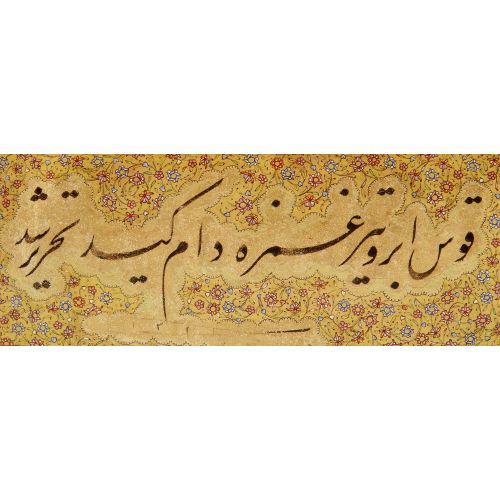 قوس ابرو تیر غمزه دام کید تحریر شد